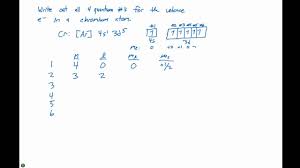 Write out all 4 quantum #s for the valence
e⁻ in a chromium atom.
Cr: [Ar] 4s¹ 3d⁵
4s 3d
mℓ: 0
n ℓ mℓ ms
1 4 0 0 +1/2
2 3 2
3
4
5
6